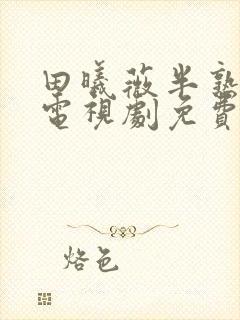 田曦薇半熟
電視劇免費
烙色